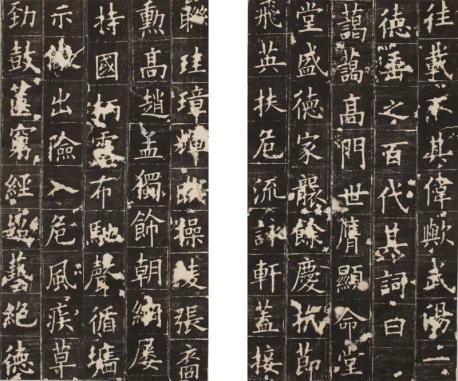 徃載不其偉歟武陽二
德垂之百代其詞曰
藹藹高門世膺顯命堂
堂盛德家襲餘慶抗節
飛英扶危流詠軒蓋接
聯珪璋輝映操陵張裔
勳高趙孟獨飾朝綱屢
持國柄露布馳聲循墻
示出險入危風疾草
勁鼓窮經蘊藝絕德